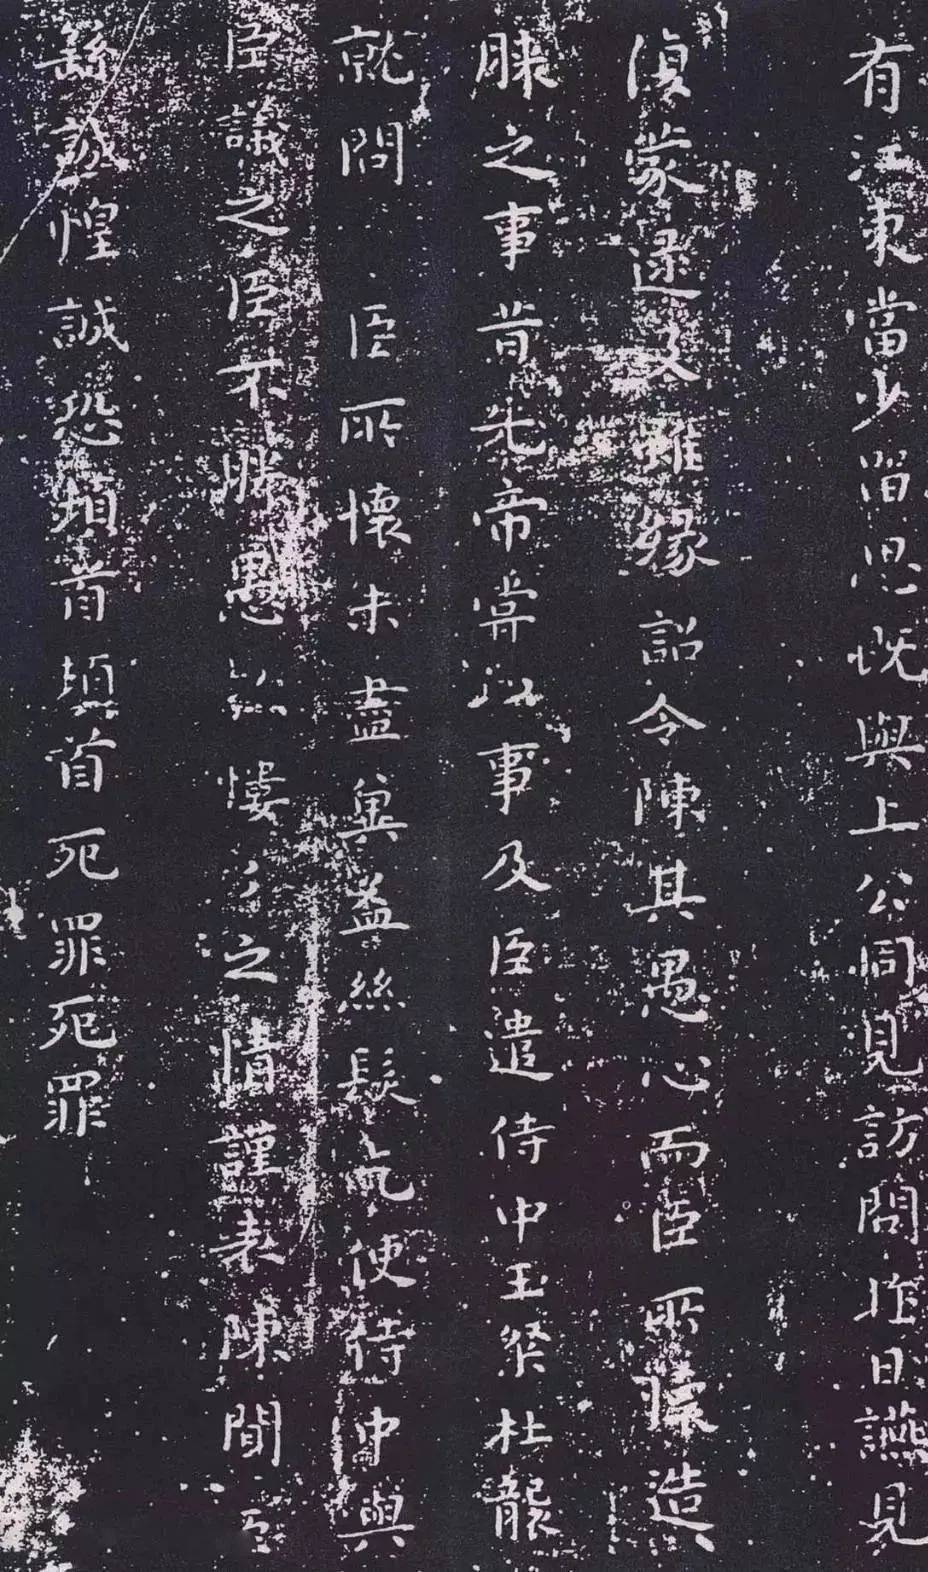 有江東當少留思既與上公同見訪問昨日讌見
復蒙逮及雖緣詔令陳其愚心而臣所懷造
膝之事昔先帝常以事及臣遣侍中王粲杜襲
就問 臣所懷未盡奚益絲髮乞使侍中與
臣議之臣不勝愚款慺々之情謹表陳聞臣
繇誠惶誠恐頓首頓首死罪死罪